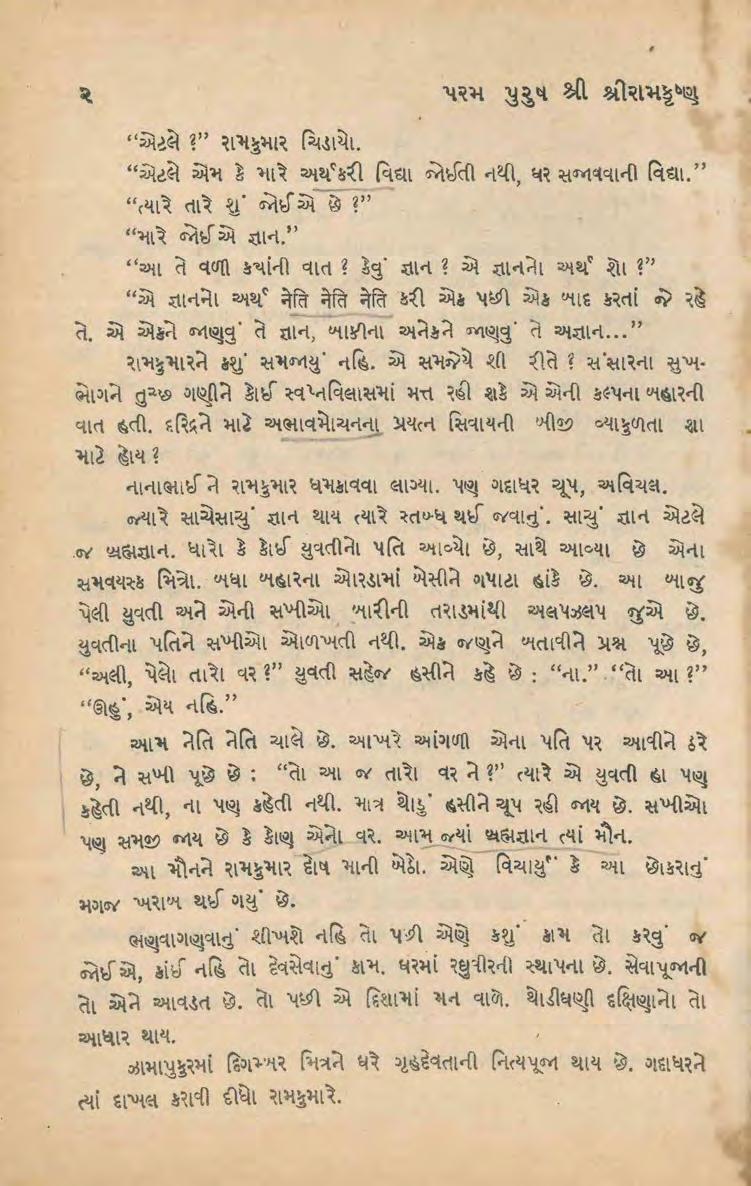 ૨ પરમ પુરુષ શ્રી શ્રીરામકૃષ્ણ
“એટલે ?” રામકુમાર ચિડાયો.
“એટલે એમ કે મારે અર્થકરી વિદ્યા જોઈતી નથી, ઘર સજાવવાની વિદ્યા.”
“ત્યારે તારે શું જોઈએ છે ?”
“મારે જોઈએ જ્ઞાન.”
“આ તે વળી ક્યાંની વાત ? કેવું જ્ઞાન ? એ જ્ઞાનનો અર્થ શો ?”
“એ જ્ઞાનનો અર્થ નેતિ નેતિ નેતિ કરી એક પછી એક બાદ કરતાં જે રહે
તે. એ એકને જાણવું તે જ્ઞાન, બાકીના અનેકને જાણવું તે અજ્ઞાન...”
રામકુમારને કશું સમજાયું નહિ. એ સમજેયે શી રીતે ? સંસારના સુખ-
ભોગને તુચ્છ ગણીને કોઈ સ્વપ્નવિલાસમાં મત્ત રહી શકે એ એની કલ્પના બહારની
વાત હતી. દરિદ્રને માટે અભાવમોચનના પ્રયત્ન સિવાયની બીજી વ્યાકુળતા શા
માટે હોય ?
નાનાભાઈ ને રામકુમાર ધમકાવવા લાગ્યા. પણ ગદાધર ચૂપ, અવિચલ.
જ્યારે સાચેસાચું જ્ઞાન થાય ત્યારે સ્તબ્ધ થઈ જવાનું. સાચું જ્ઞાન એટલે
જ બ્રહ્મજ્ઞાન. ધારો કે કોઈ યુવતીનો પતિ આવ્યો છે, સાથે આવ્યા છે એના
સમવયસ્ક મિત્રો. બધા બહારના ઓરડામાં બેસીને ગપાટા હાંકે છે. આ બાજુ
પેલી યુવતી અને એની સખીઓ બારીની તરાડમાંથી અલપઝલપ જુએ છે.
યુવતીના પતિને સખીઓ ઓળખતી નથી. એક જણને બતાવીને પ્રશ્ન પૂછે છે,
“અલી, પેલો તારો વર ?” યુવતી સહેજ હસીને કહે છે : “ના.” “તો આ ?”
“ઊહું, એય નહિ.”
આમ નેતિ નેતિ ચાલે છે. આખરે આંગળી એના પતિ પર આવીને ઠરે
છે, ને સખી પૂછે છે : “તો આ જ તારો વર ને ?” ત્યારે એ યુવતી હા પણ
કહેતી નથી, ના પણ કહેતી નથી. માત્ર થોડું હસીને ચૂપ રહી જાય છે. સખીઓ
પણ સમજી જાય છે કે કોણ એનો વર. આમ જ્યાં બ્રહ્મજ્ઞાન ત્યાં મૌન.
આ મૌનને રામકુમાર દોષ માની બેઠો. એણે વિચાર્યું કે આ છોકરાનું
મગજ ખરાબ થઈ ગયું છે.
ભણવાગણવાનું શીખશે નહિ તો પછી એણે કશું કામ તો કરવું જ
જોઈએ, કાંઈ નહિ તો દેવસેવાનું કામ. ઘરમાં રઘુવીરની સ્થાપના છે. સેવાપૂજાની
તો એને આવડત છે. તો પછી એ દિશામાં મન વાળે. થોડીઘણી દક્ષિણાનો તો
આધાર થાય.
ઝામાપુકુરમાં દિગમ્બર મિત્રને ઘરે ગૃહદેવતાની નિત્યપૂજા થાય છે. ગદાધરને
ત્યાં દાખલ કરાવી દીધો રામકુમારે.